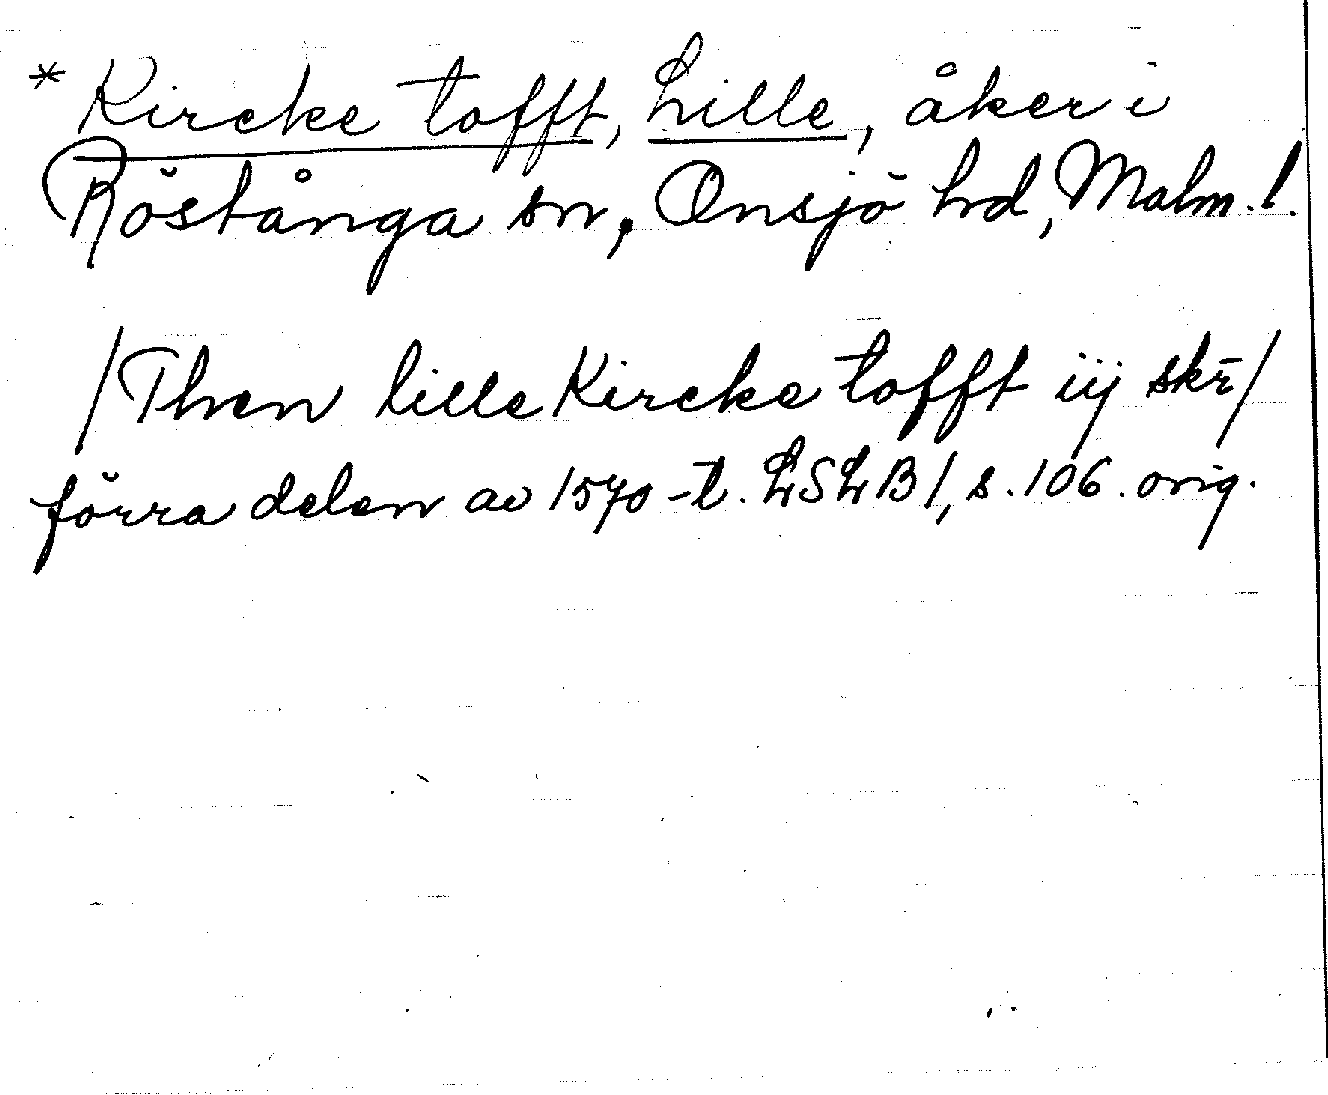 * Kircke tofft, Lille, åker i
Röstånga sn, Onsjö hd, Malm. l.
/Then lille Kircke tofft iij skr̄/
förra delen av 1570-t. LSLB 1, s. 106. orig.